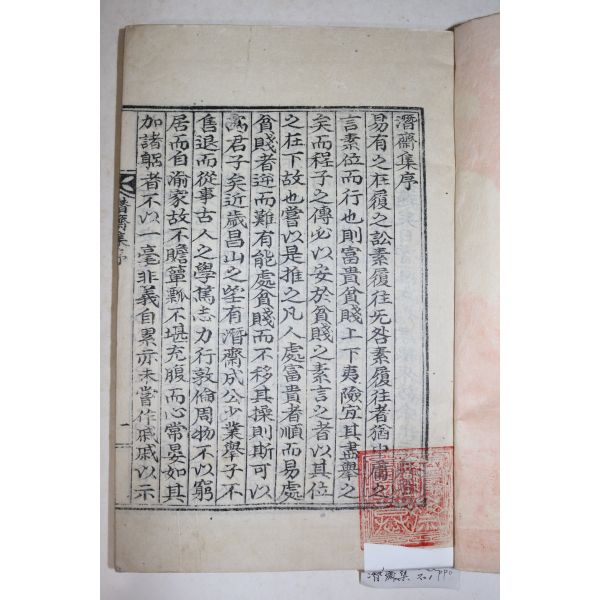 潛齋集序
易有之在履之訟素履往旡咎素履往者猶中庸之
言素位而行也則富貴貧賤上下夷險宜其盡擧之
矣而程子之傳必以安於貧賤之素言之者以其位
之在下故也嘗以是推之凡人處富貴者順而易處
貧賤者逆而難有能處貧賤而不移其操則斯可以
爲君子矣近歲昌山之
有潛齋成公少業擧子不
售退而從事古人之學篤志力行敦倫周物不以窮
居而自渝家故不贍簞瓢不堪充腹而心常晏如其
加諸躬者不以一毫非義自累亦未嘗作戚戚以示
潛齋集序
一
潛齋集